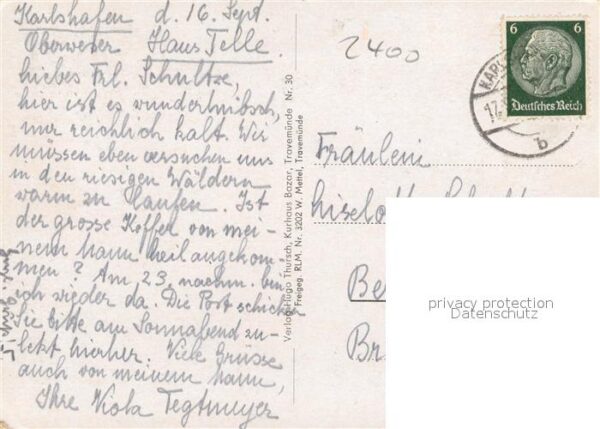 Karlshafen d. 16. Sept.
Oberweser Haus Telle.
Liebes Frl. Schultze,
hier ist es wunderhübsch,
nur reichlich kalt. Wir
müssen eben versuchen uns
in den riesigen Wäldern
warm zu laufen. Ist
der grosse Koffer von mei-
nem Mann heil angekom-
men? Am 23. nachm. bin
ich wieder da. Die Post schicken
Sie bitte am Sonnabend zu-
letzt hierher. Viele Grüsse
auch von meinem Mann,
Ihre Viola Tegtmeyer
2400
6 6
Deutsches Reich
KARL
17.
b
Fräulein
Liselotte
Be
Br
Verlag Hugo Thursch, Kurhaus Bazar, Travemünde Nr. 30
Freigeg. RLM. Nr. 3202 W. Mettel, Travemünde
privacy protection
Datenschutz